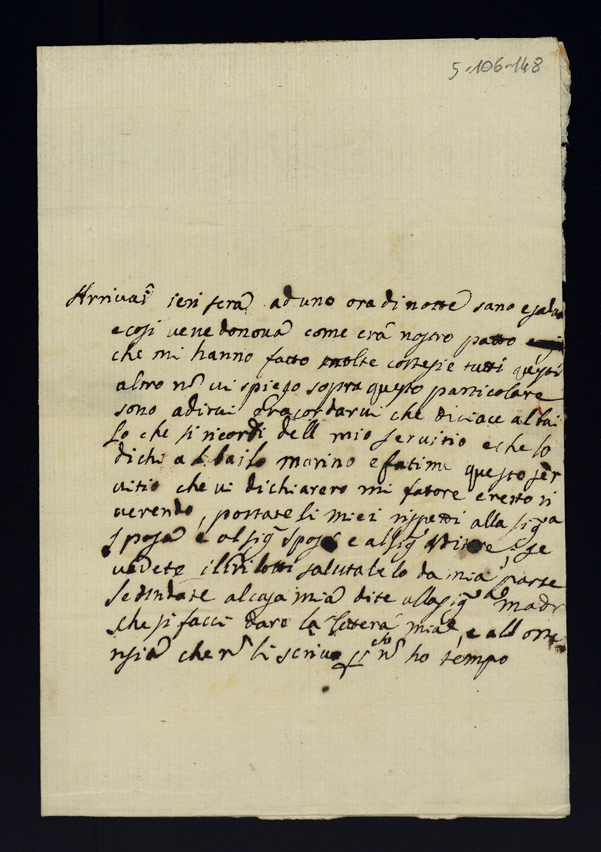 5-106-148
Arrivai ieri sera ad uno ora di notte sano e salvo
e cosi ve ne do nova come era nostro patto
che mi hanno fatto molte cortesie tutti questi
altro nõ vi spiego sopra questo particolare
sono a dirvi e racordarvi che diciate al bai
lo che si ricordi dell mio servitio e che lo
dichi al bailo marino e fatimi questo ser
vitio che vi dichiarero mi fatore e resto ri
verendo, portate li miei rispetti alla sigra
sposa e al sigr sposo e al sigr se
vedete salutatelo da mia parte
se andate a casa mia dite alla sigra madr
che si facci dare la lettera mia, e all orte
nsia che nõ li scrivo nõ ho tempo